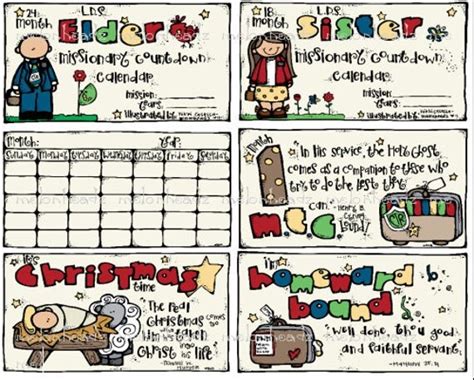 24 month
L.D.S.
Elder
missionary countdown
calendar
mission:
years:
illustrated by:
18 month
L.D.S.
Sister
missionary countdown
calendar
mission:
years:
illustrated by:
month:
year:
Sunday Monday Tuesday Wednesday Thursday Friday Saturday
month
1
In his service, the Holy Ghost
comes as a companion to those who
try to do the best that
they can.
M.T.C.
bound!
it's
Christmas
time
The real
Christmas comes
to him
who has taken
Christ into
his life
i'm
homeward
bound
well done, thou good
and faithful servant.